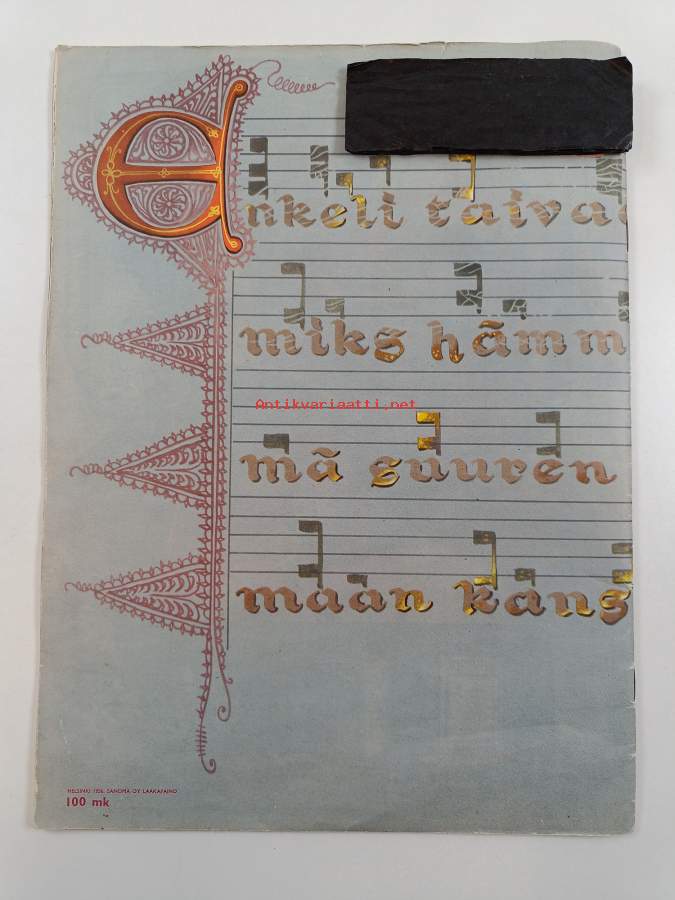 Enkeli taivaa
miks hämm
Antikvariaatti.net
mä suuren
maan käns
HELSINKI 1956, SANOMA OY LAAKAPAINO
100 mk